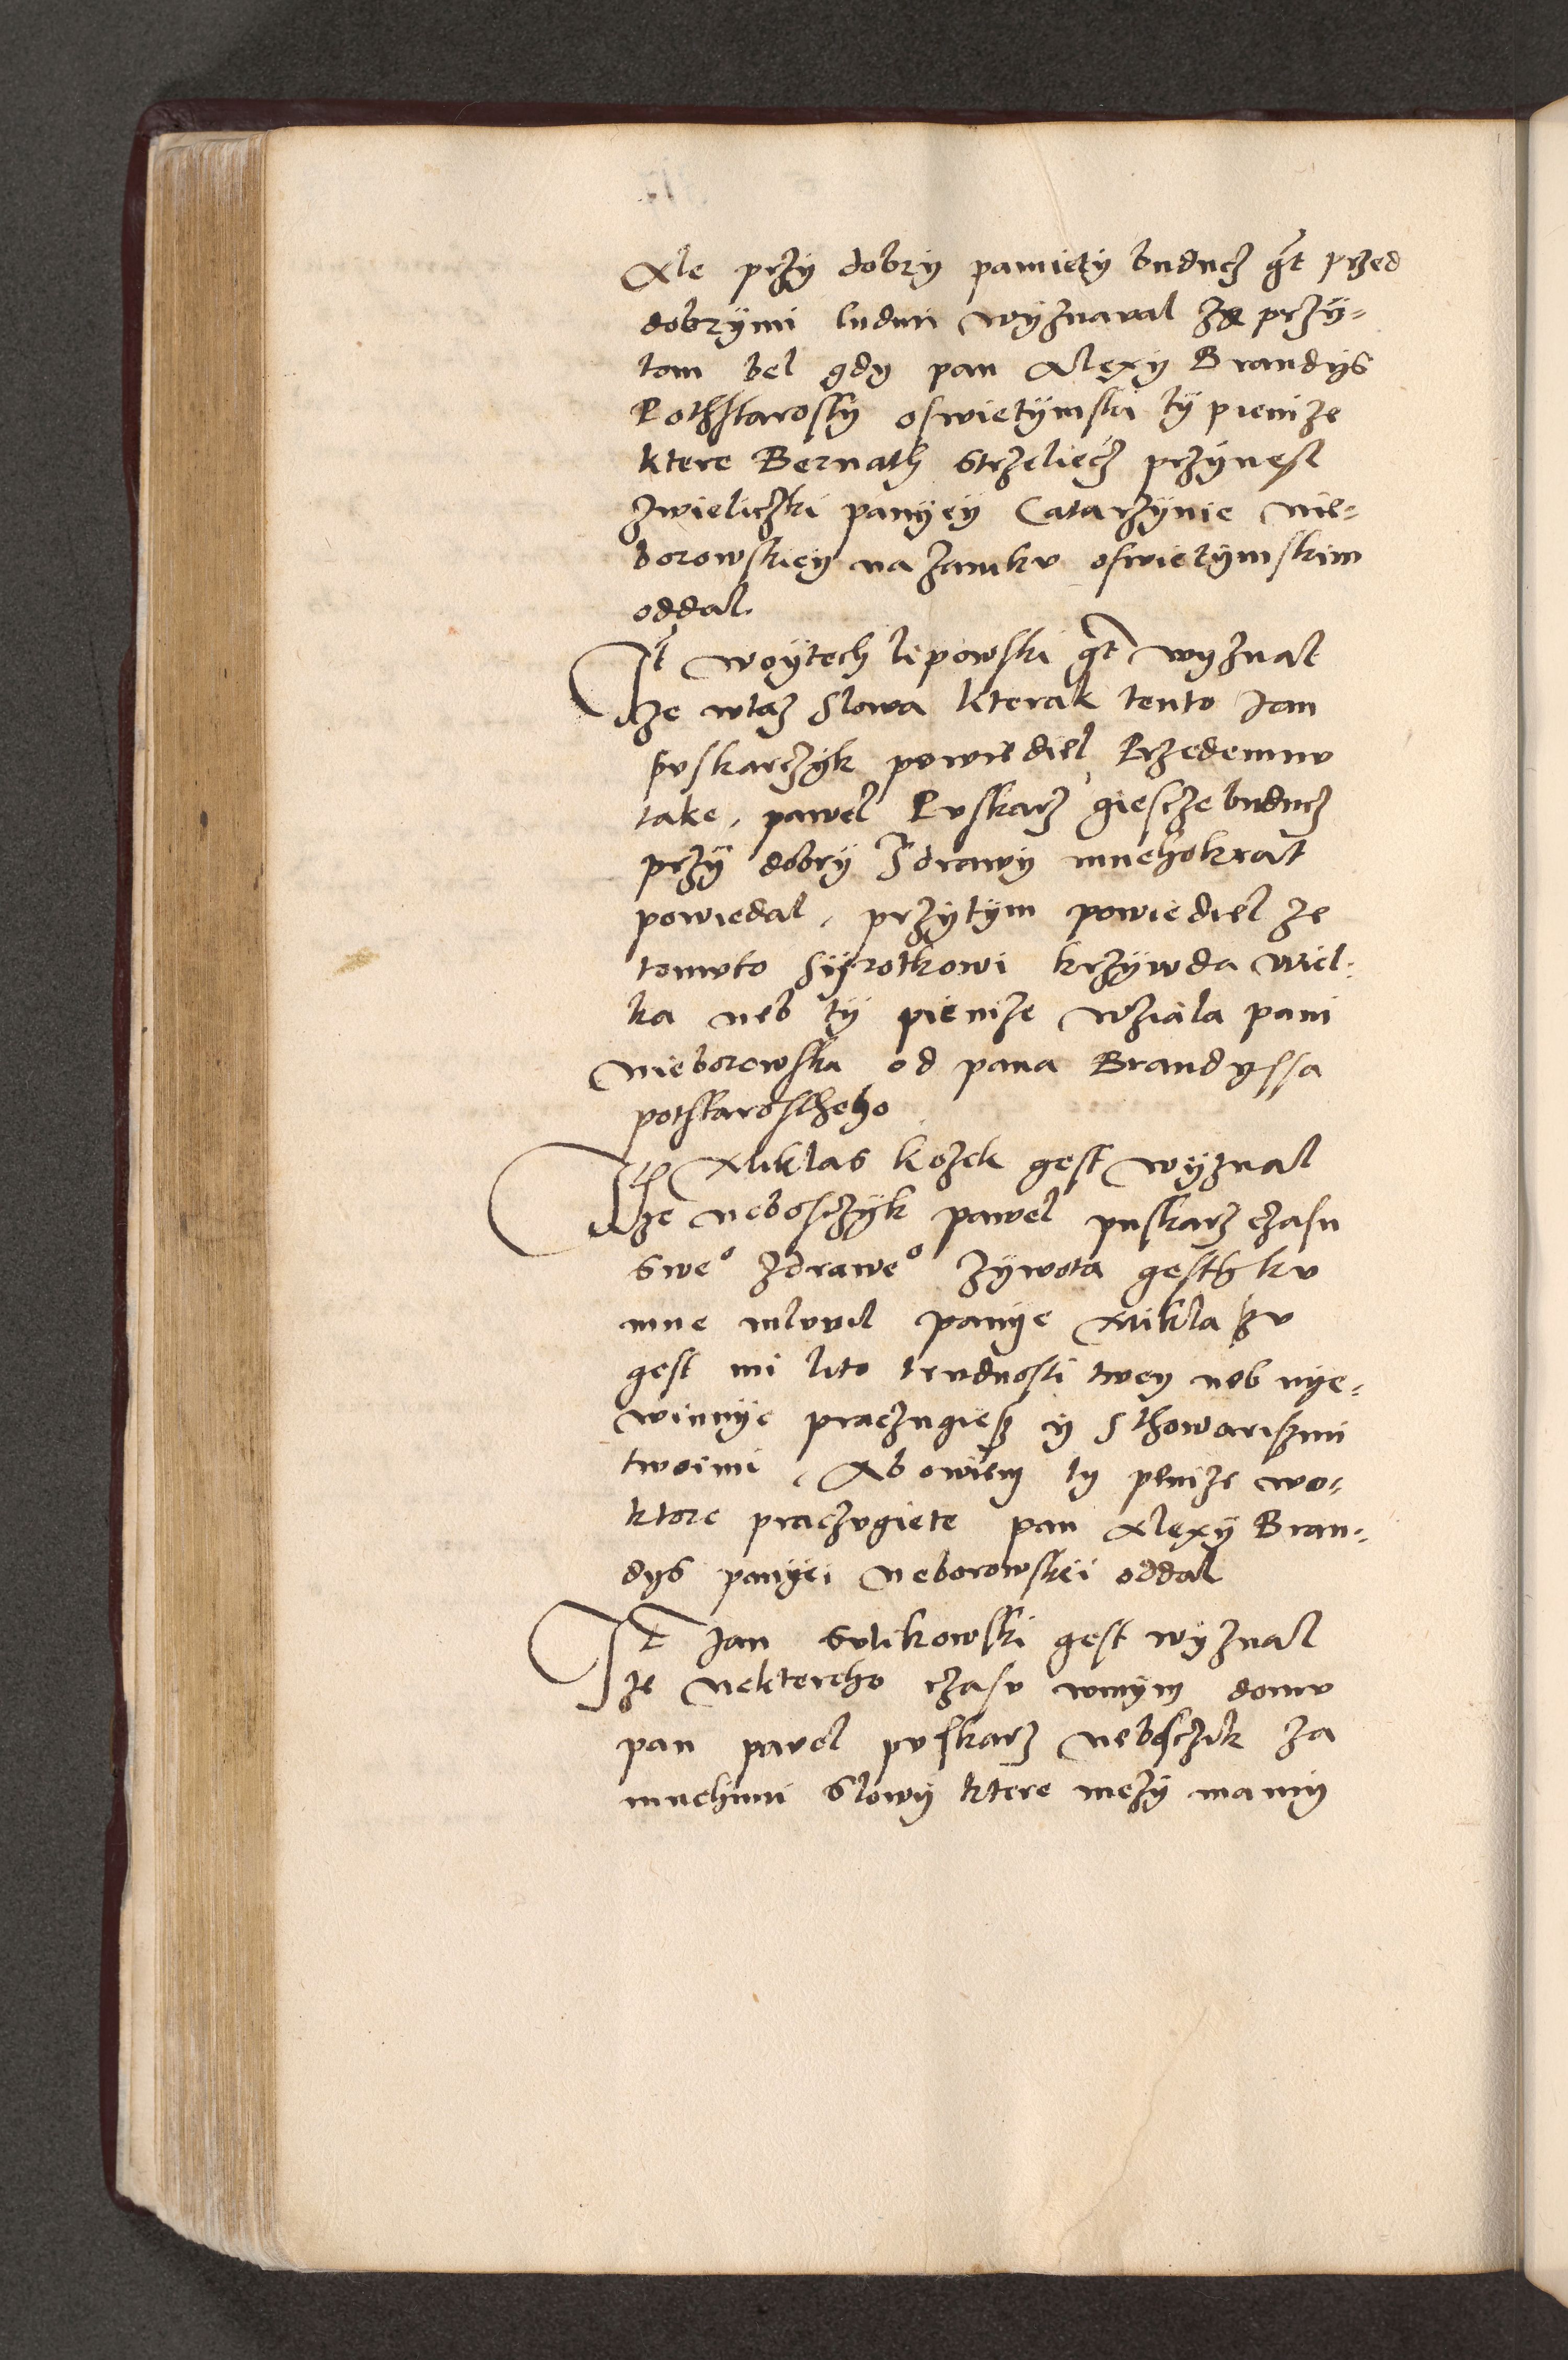 Ale przy dobry pamiety buducz gt przed
dobrymi ludmi wyznaval ze przy=
tom bel gdy pan Alexy Brandys
Pothstarosty oswietymski ty pienize
ktere Bernath Strzeliecz przynesl
zwieliczki panyey Catarzynie nie=
borowskiey na zamku oswietymskim
oddal.
It woytech lipowski gt wyznal
ze wtaz slowa kterak tento Jan
puskarzyk powiediel przedemnu
take, pawel Puskarz giescze buducz
przy dobry zdrawy mnehokrat
powiedal, przytym powiediel ze
tomuto syrotkowi krzywda wiel=
ka neb ty pienize wziala pani
nieborowska od pana Brandyssa
potstarostheho
Itm Miklas kozek gest wyznal
ze neboszczyk pawel puskarz czasu
sweo zdraweo zywota gesth ku
mne mluvil panye Miklaßu
gest mi lito trudnosti twey neb nye=
winnye praczugieß y sthowarißmi
twoimi, Abowiem ty penize wo=
ktore praczugiete pan Alexy Bran=
dys panyei neborowskei oddal
It Jan Sulikowski gest wyznal
ze nektereho czasu wmym domu
pan pavel puskarz nebosczik za
mnehimi slowy ktere mezy namy